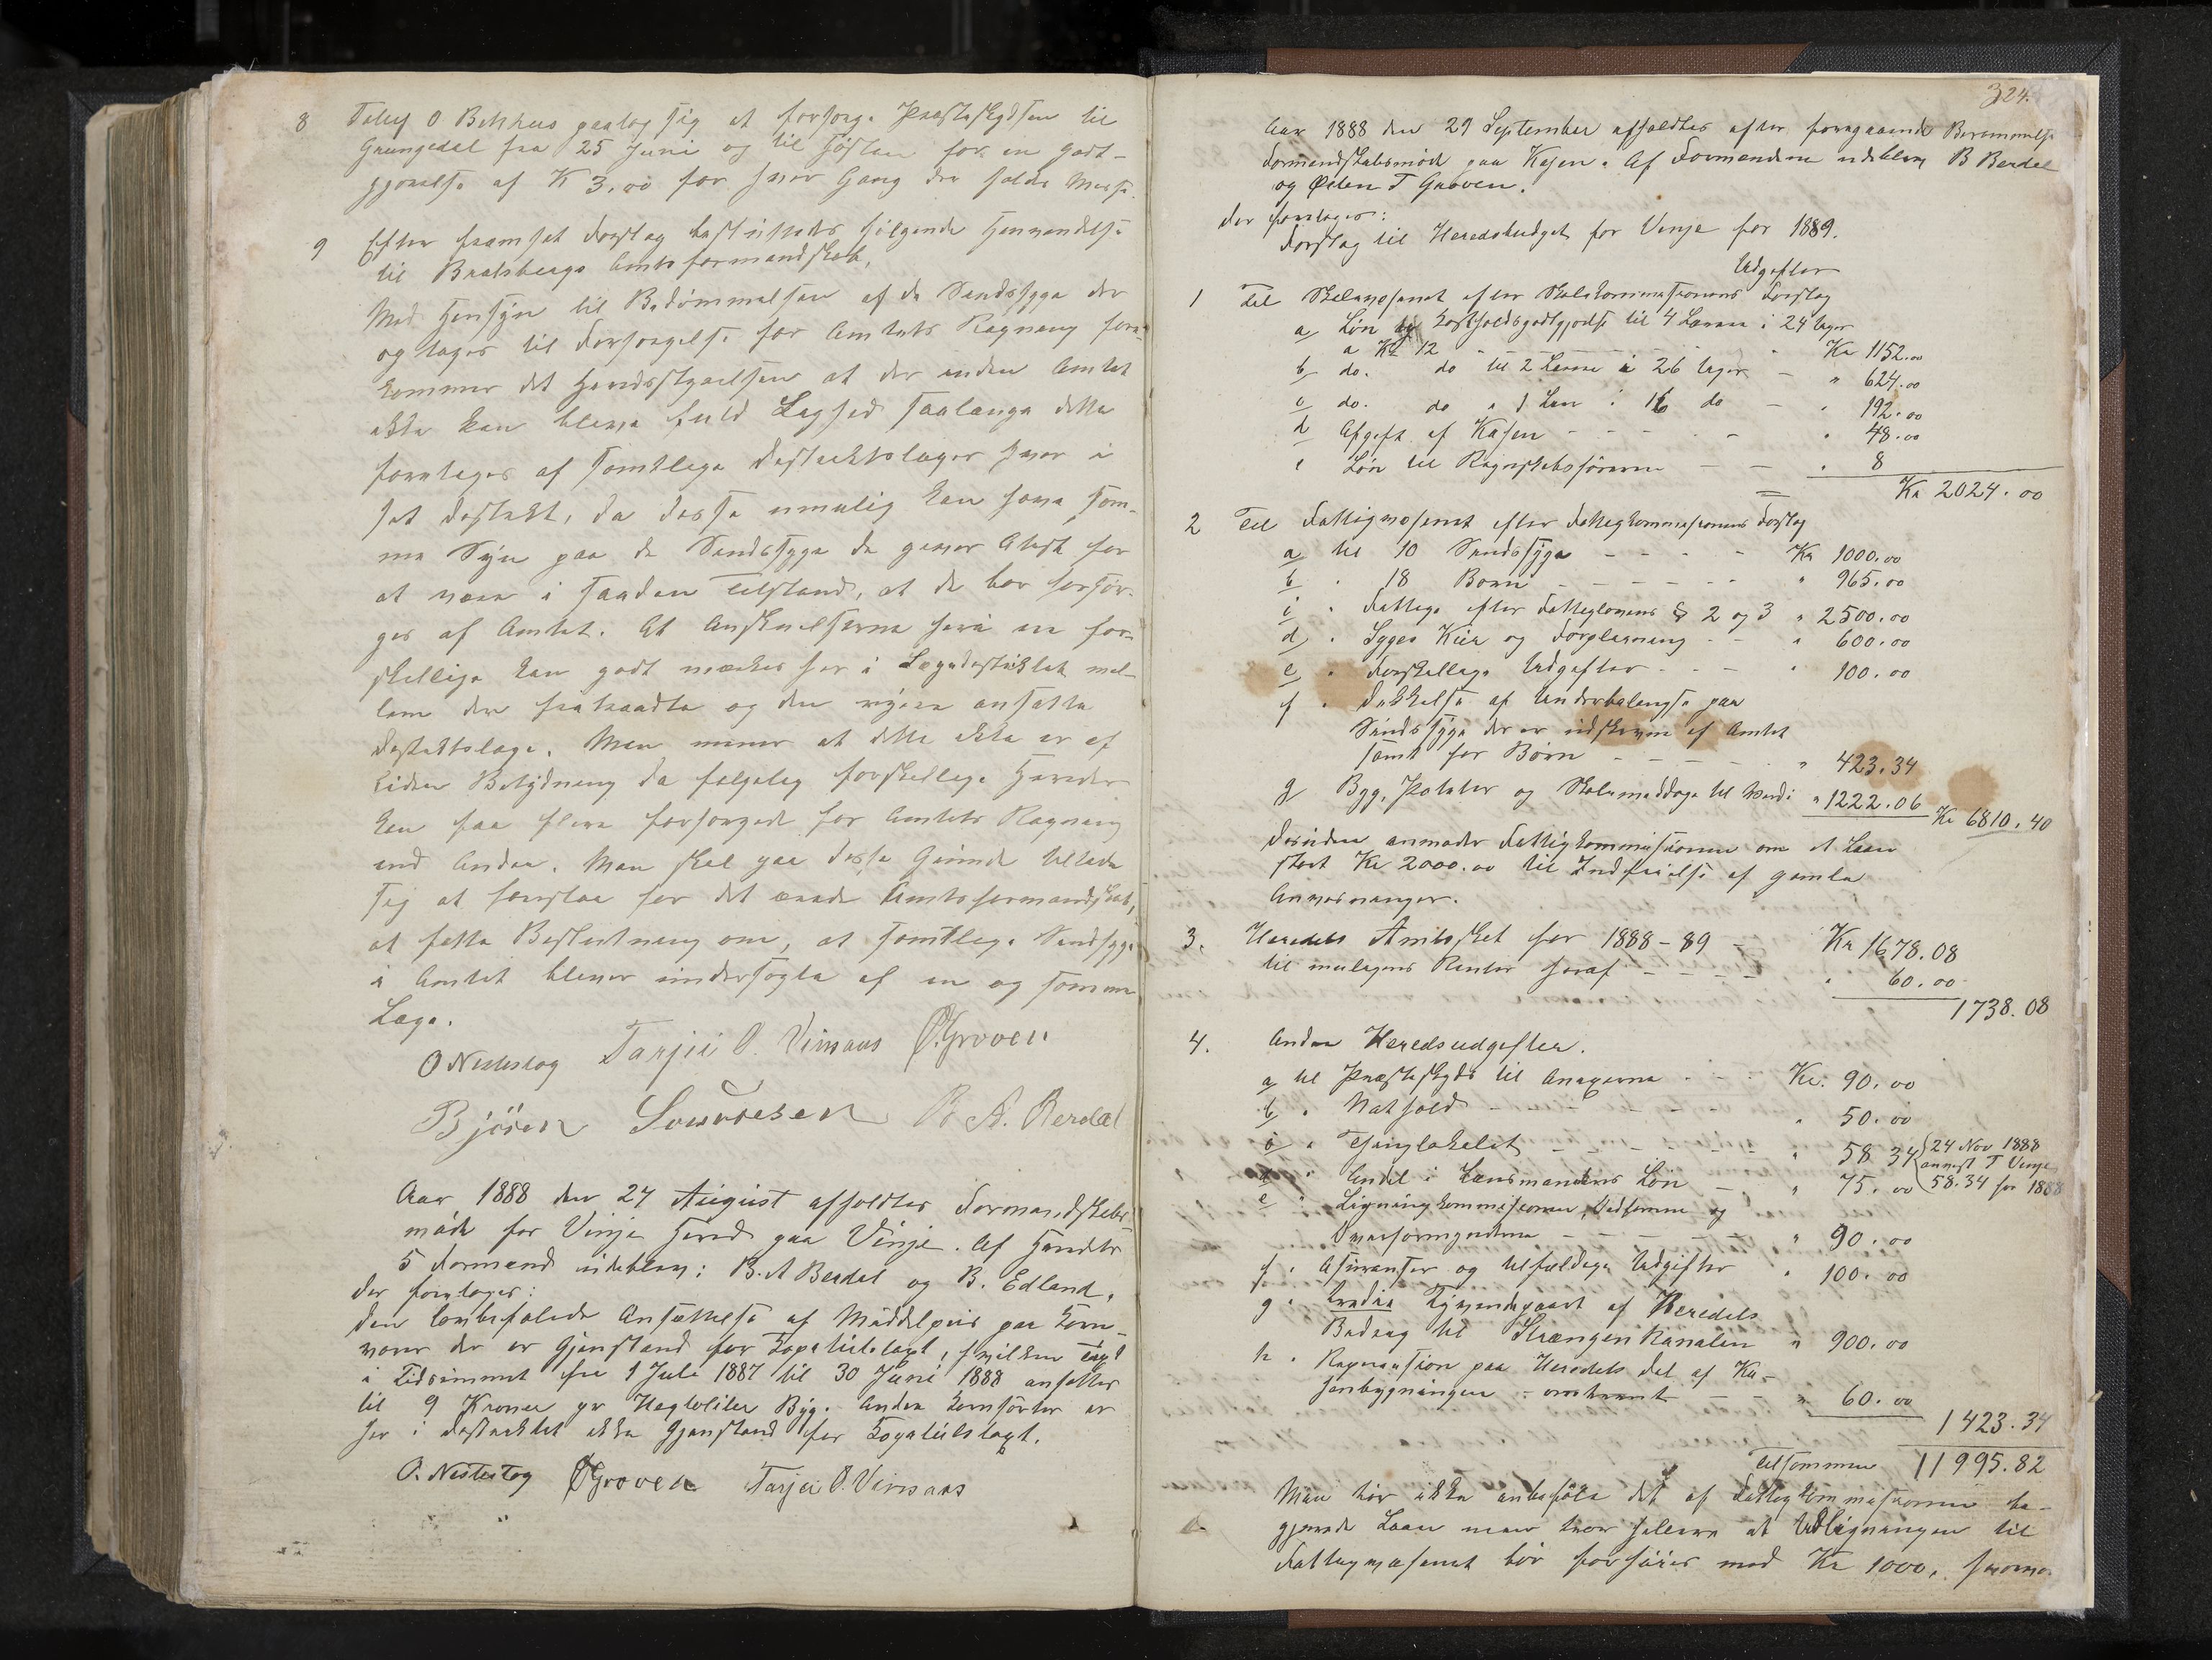 8 Tellef O Bekhus paatog sig at forsørge Præsteskydsen til
Grungedal fra 25 Juni og til Høsten for en Godt-
gjørelse af K 3.00 for hver Gang der holdes Messe.
9 Efter fremsat Forslag besluttedes følgende Henvendelse
til Bratsbergs Amtsformandskab,
Med Hensyn til Bedømmelsen af de Sindssyge der
og tages til Forsørgelse for Amtets Regning fore-
kommer det Heredsstyrelsen at der inden Amtet
ikke kan blive fuld Lighed saalænge dette
foretages af samtlige Distriktslæger hver i
sit Distrikt, da disse umulig kan have sam-
me Syn paa de Sindssyge de giver Attest for
at være i saadan Tilstand, at de bør forsør-
ges af Amtet. At Anskuelserne heri ere for-
skellige kan godt mærkes her i Lægedistriktet mel-
lem den fratraadte og den nyere ansatte
Distriktslæge. Man mener at dette ikke er af
liden Betydning da følgelig forskellige Hereder
kan faa flere forsørgede for Amtets Regning
end Andre. Man skal paa disse Grunde tillade
sig at foreslaa for det ærede Amtsformandskab,
at fatte Beslutning om, at samtlige Sindssyge
i Amtet bliver undersøgte af en og samme
Læge.
O Nestestog Tarjei O. Vinsaas Ø. Groven
Bjørn B A. Berdal
Aar 1888 den 24 August afholdtes Formandskabs-
møde for Vinje Hered paa Vinje. Af Heredets
5 Formænd udeblev: B. A Berdal og B. Edland.
Der foretoges:
Den lovbefalede Ansættelse af Middelpris paa Korn-
varer der er Gjenstand for Kapitelstaxt, hvilken Taxt
i Tidsrummet fra 1 Juli 1887 til 30 Juni 1888 ansættes
til 9 Kroner pr Hektoliter Byg. Andre Kornsorter er
her i Distriktet ikke Gjenstand for Kapitelstaxt.
O. Nestestog Ø Groven Tarjei O. Vinsaas
324.
Aar 1888 den 29 September afholdtes efter foregaaende Berammelse
Formandskabsmøde paa Kasen. Af Formændene udeblev B Berdal
og Østen T Groven.
Der foretoges:
Forslag til Heredsbudget for Vinje for 1889.
Udgifter
1 Til Skolevæsenet efter Skolekommissionens Forslag
a Løn og Kostholdsgodtgjørelse til 4 Lærere i 24 Uger
a Kr 12 - - - - Kr 1152.00
b do. do til 2 Lærere i 26 Uger - " 624.00
c do. do " 1 Lærer i 16 do - " 192.00
d Afgift af Kasen - - - - " 48.00
e Løn til Regnskabsføreren - - " 8
Kr 2024.00
2 Til Fattigvæsenet efter Fattigkommissionens Forslag
a til 10 Sindssyge - - - - Kr 1000.00
b " 18 Børn - - - - - - " 965.00
c " Fattige efter Fattiglovens § 2 og 3 " 2500.00
d " Syges Kur og Forpleining - - " 600.00
e " Forskellige Udgifter - - - " 100.00
f " Dækkelse af Underbalange paa
Sindssyge der er udskrevne af Amtet
samt for Børn - - - - - " 423.34
g Byg, Poteter og Skolemiddage til Værdi " 1222.06 Kr 6810.40
Desuden anmoder Fattigkommissionen om et Laan
stort Kr 2000.00 til Indfrielse af gamle
Anvisninger.
3. Heredets Amtsskat for 1888-89 - Kr 1678.08
til muligens Renter heraf - - - - " 60.00
1738.08
4. Andre Heredsudgifter.
a til Præsteskyds til Anexerne - - Kr. 90.00
b " Nathold - - - - - - " 50.00
c " Thinglokalet - - - - - - " 58 34 { 24 Nov 1888
anvist T Vinje
d " Andel i Lensmandens Løn - " 75.00 58.34 for 1888
e " Ligningskommissionen, Vidserne og
Overformynderne - - - - - " 90.00
f " Assuranser og tilfældige Udgifter " 100.00
g " tredie Tyvendepart af Heredets
Bidrag til Strængen Kanalen " 900.00
h " Reparation paa Heredets Del af Ka-
senbygningen - omtrent - - " 60.00
1423.34
Tilsammen 11995.82
Man bør ikke anbefale det af Fattigkommissionen be-
gjærede Laan men tror heller at Udligningen til
Fattigvæsenet bør forhøies med Kr 1000, hvorved